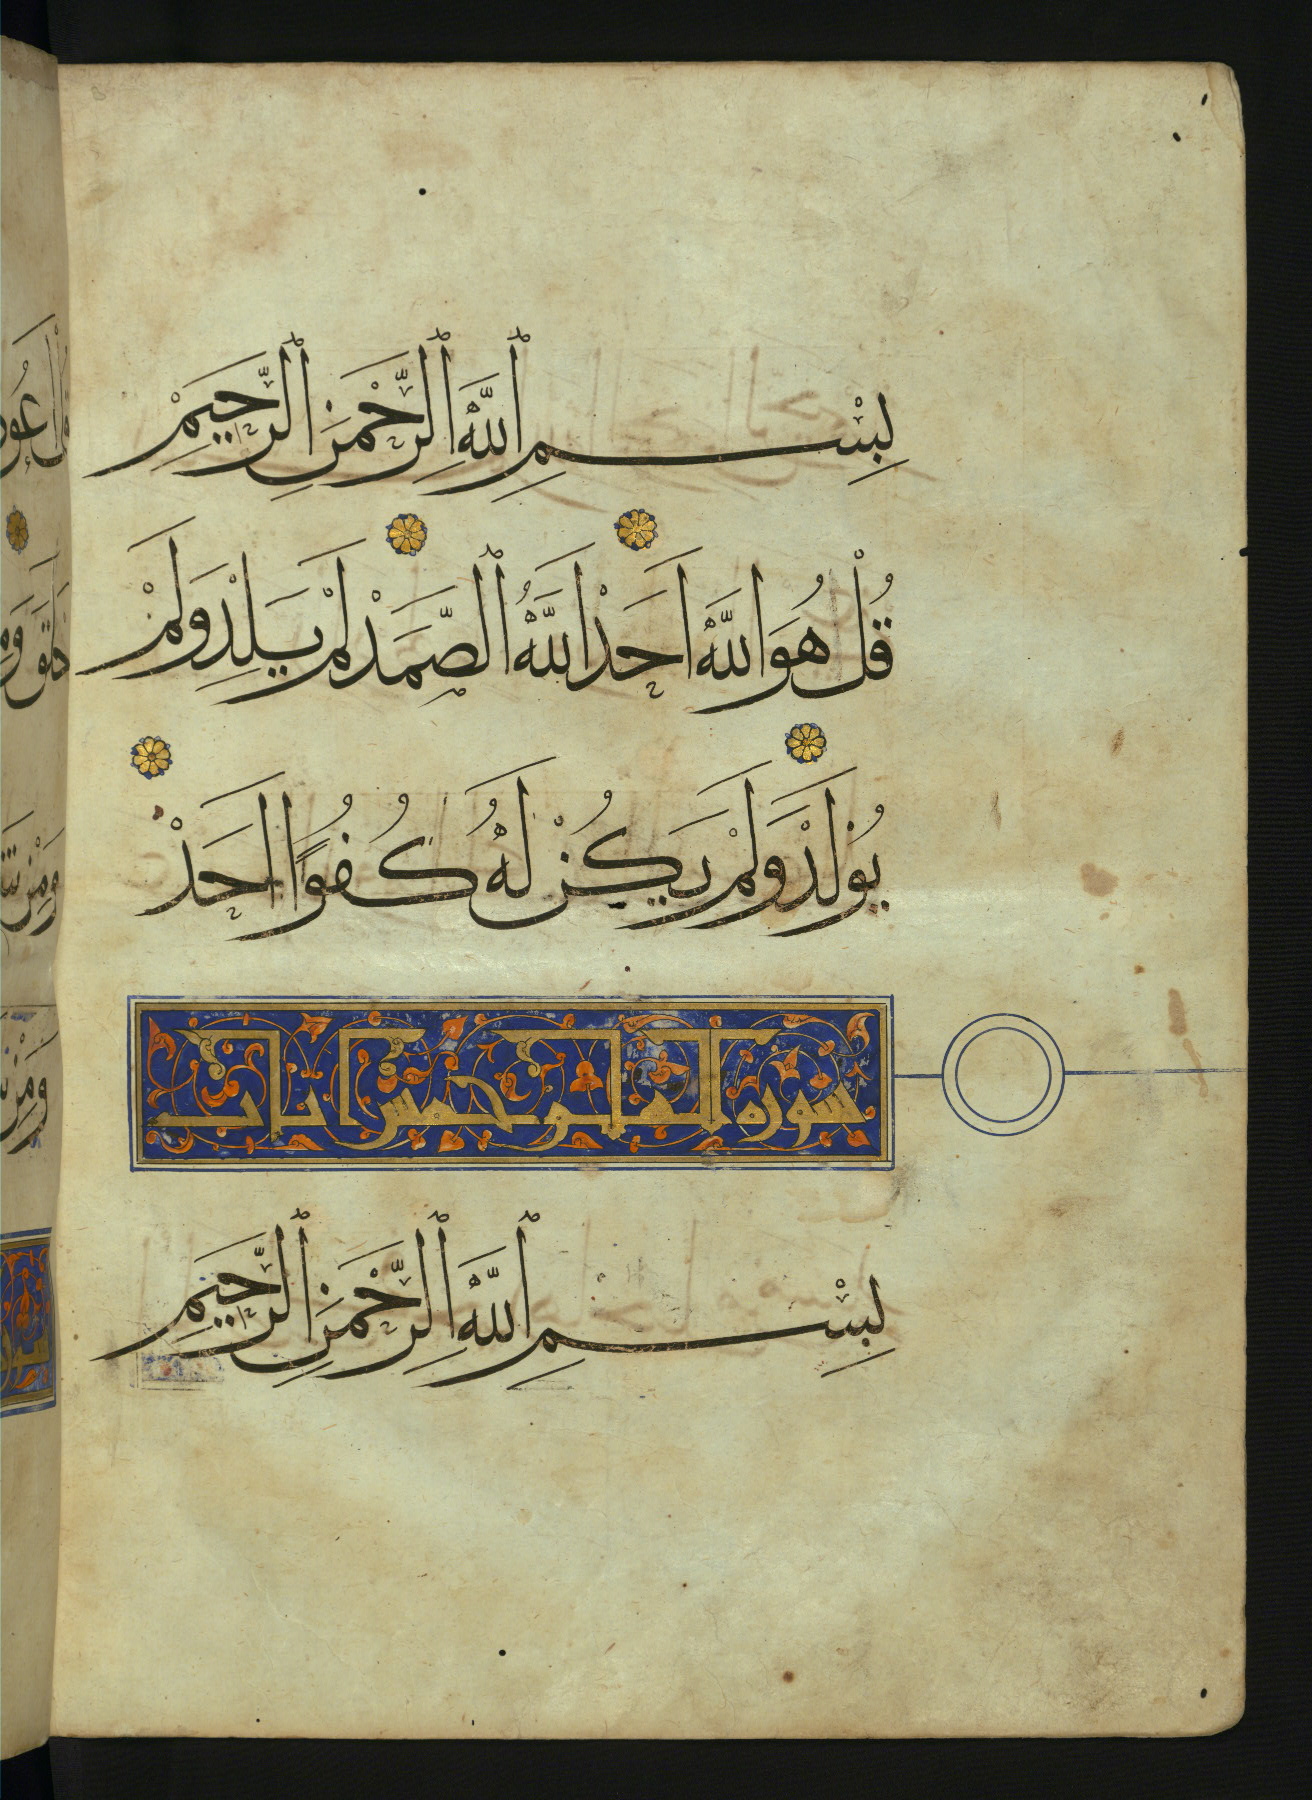 بِسْمِ ٱللَّهِ ٱلرَّحْمَنِ ٱلرَّحِيمِ
قُلْ هُوَ اللَّهُ أَحَدْ اللَّهُ ٱلصَّمَدْ لَمْ يَلِدْ وَلَمْ
يُولَدْ وَلَمْ يَكُنْ لَهُ كُفُوًا أَحَدْ
سورة الفلق خمس آيات
بِسْمِ ٱللَّهِ ٱلرَّحْمَنِ ٱلرَّحِيمِ